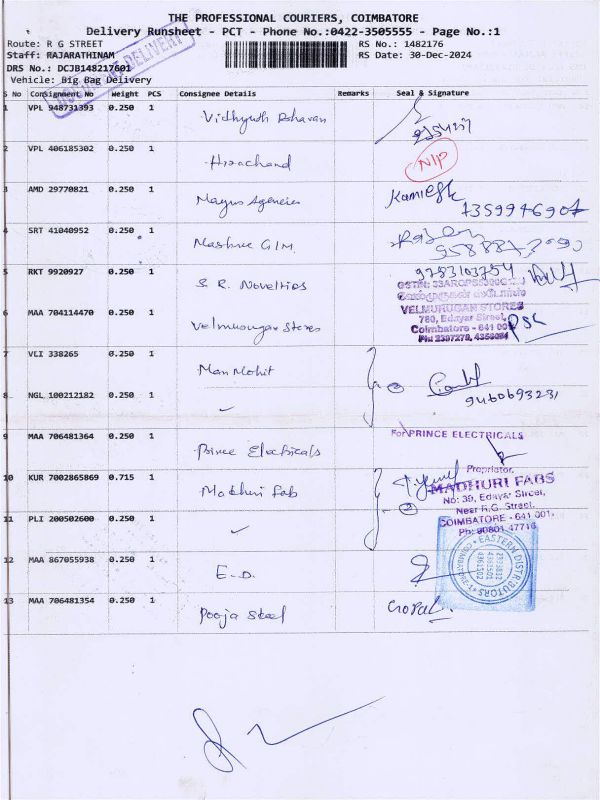 THE PROFESSIONAL COURIERS, COIMBATORE
Delivery Runsheet - PCT - Phone No.:0422-3505555 - Page No.:1
Route: R G STREET
RS No.: 1482176
Staff: RAJARATHINAM
RS Date: 30-Dec-2024
DRS No.: DCJB148217601
Vehicle: Big Bag Delivery
S No Consignment No Weight PCS Consignee Details Remarks Seal & Signature
1 VPL 948731393 0.250 1 Vidhyuth Bhavan
2 VPL 406185302 0.250 1 Hirachand N/P
3 AMD 29770821 0.250 1 Magus Agencies Kamlesh
7359946907
4 SRT 41040952 0.250 1 Mashree GIM
5 RKT 9920927 0.250 1 S. R. Novelties 9783103754
6 MAA 704114470 0.250 1 Velmurugan Stores
VELMURUGAN STORES
780, Edayar Street,
Coimbatore - 641 001
7 VLI 338265 0.250 1 Man Mohit
8 NGL 100212182 0.250 1 ✓ 9460693231
9 MAA 706481364 0.250 1 Prince Electricals
For PRINCE ELECTRICALS
Proprietor.
10 KUR 7002865869 0.715 1 Madhuri Fab
MADHURI FABS
No: 39, Edayar Street,
Near R.G. Street,
COIMBATORE - 641 001.
Ph: 80801 47716
11 PLI 200502600 0.250 1 ✓
12 MAA 867055938 0.250 1 E.D.
EASTERN DISTRIBUTORS
COIMBATORE-1
13 MAA 706481354 0.250 1 Pooja Steel Gopal